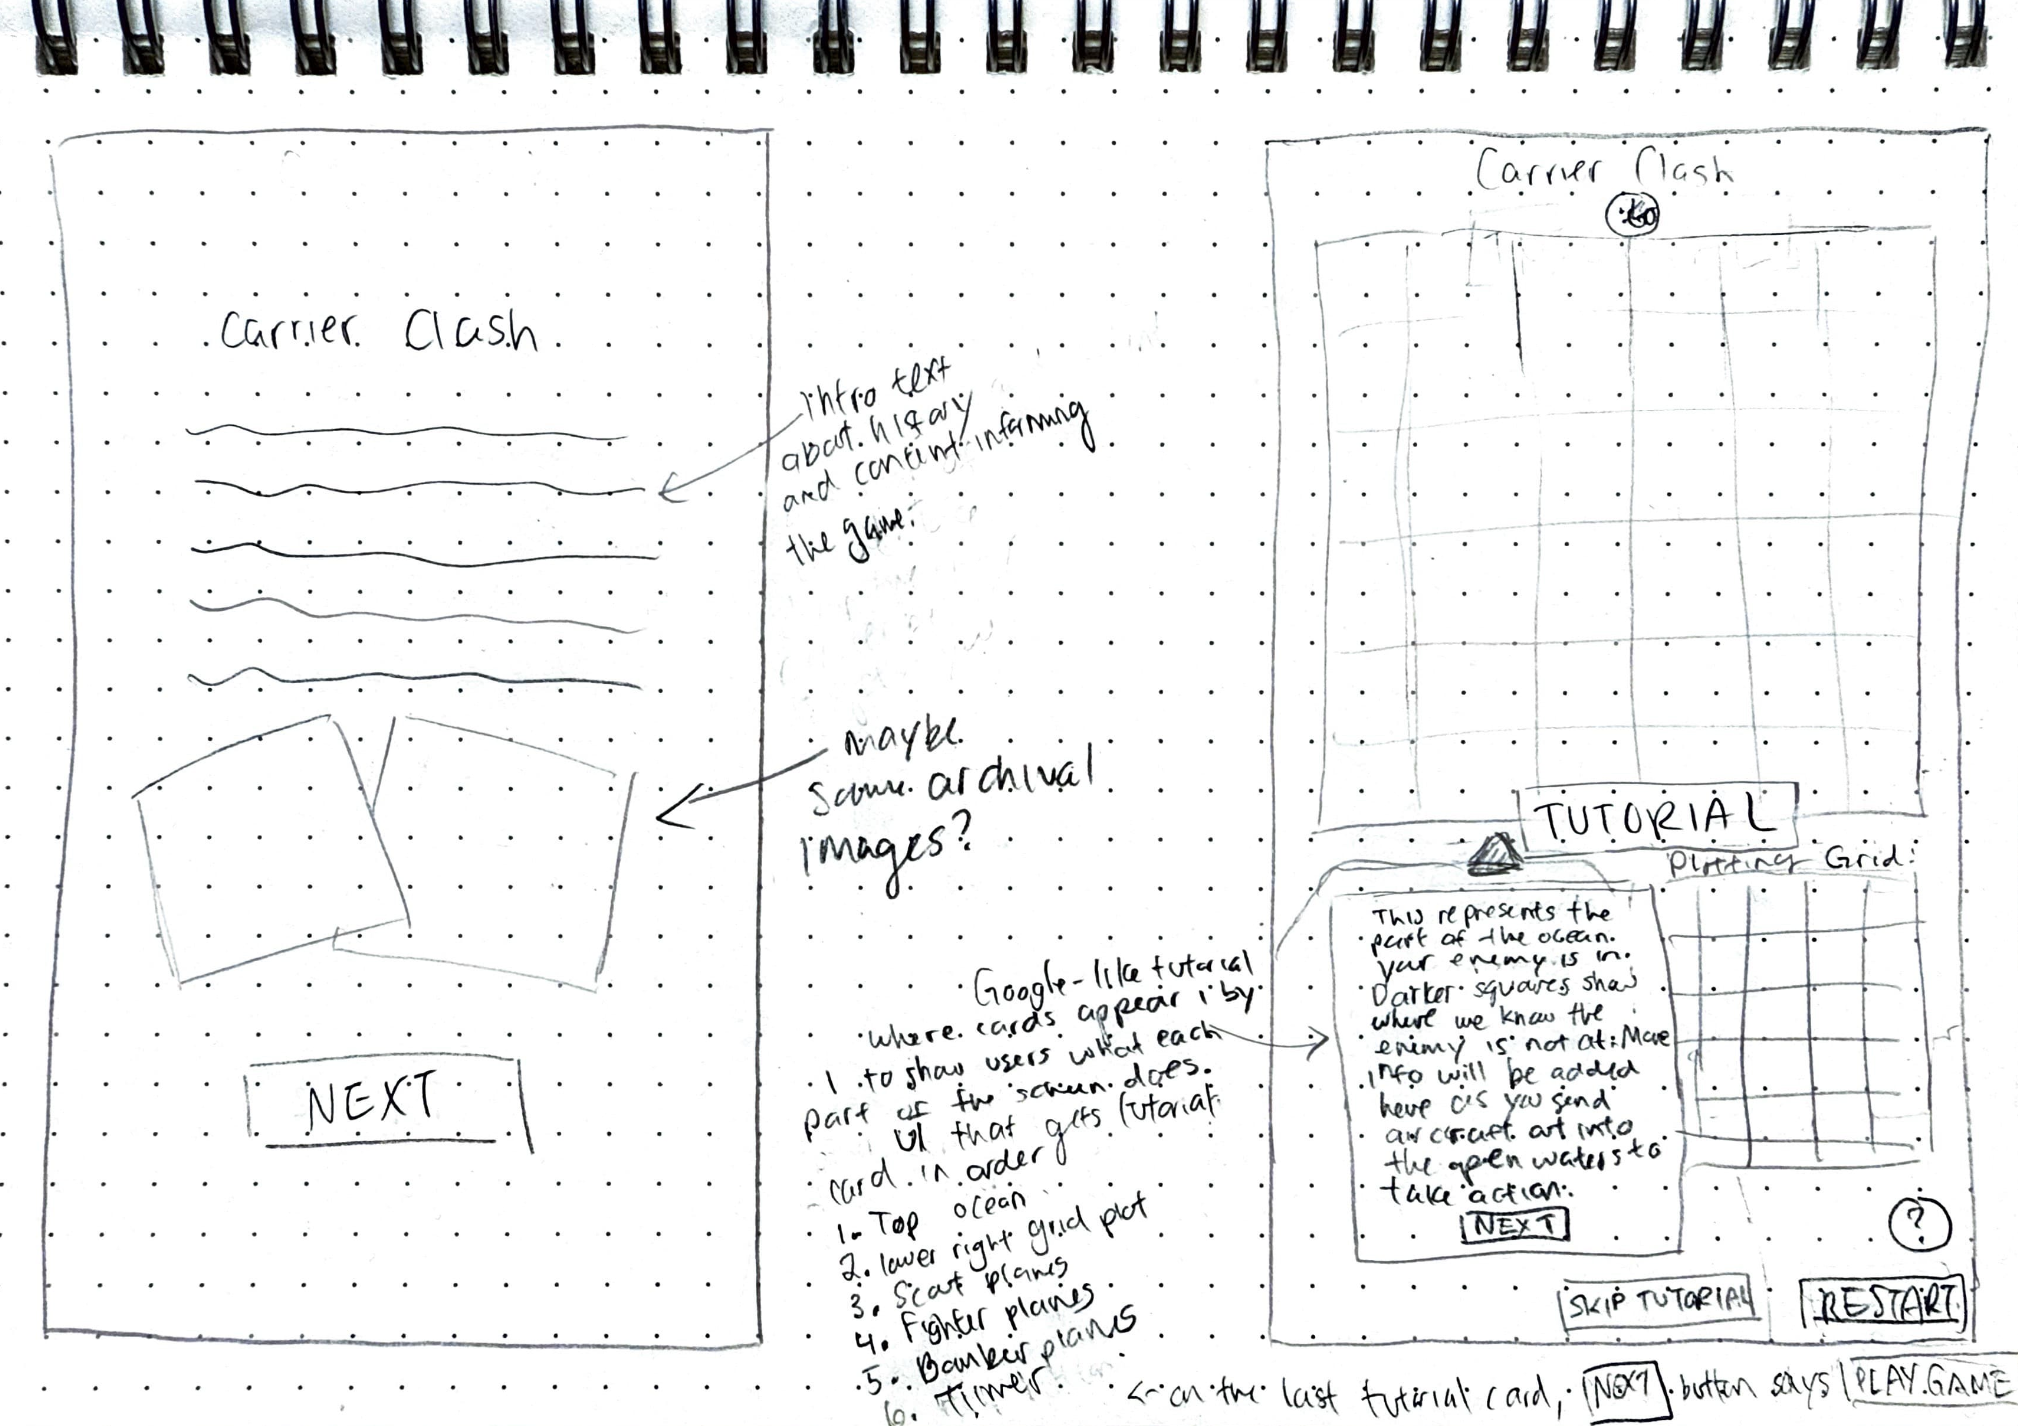 Carrier Clash
intro text
about history
and content informing
the game.
maybe
some archival
images?
NEXT
Google-like tutorial
where cards appear 1 by
1 to show users what each
part of the screen does.
UI that gets tutorial
card in order
1. Top ocean
2. lower right grid plot
3. Scout planes
4. Fighter planes
5. Bomber planes
6. Timer
Carrier Clash
TUTORIAL
Plotting Grid:
This represents the
part of the ocean
your enemy is in.
Darker squares show
where we know the
enemy is not at. More
info will be added
here as you send
aircraft out into
the open waters to
take action.
NEXT
?
SKIP TUTORIAL
RESTART
<- on the last tutorial card, NEXT button says PLAY GAME